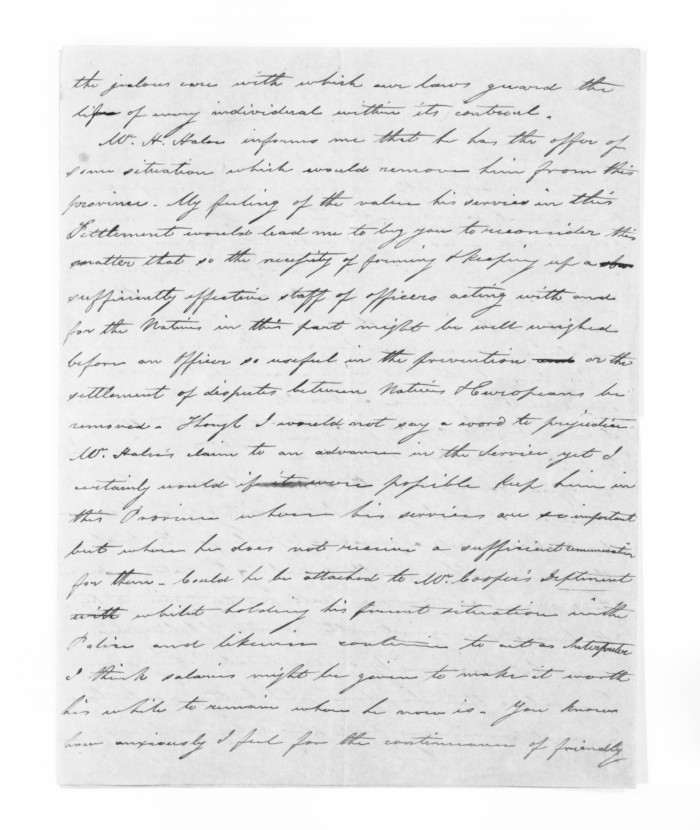 the jealous care with which our laws guard the
life of every individual within its controul.
Mr. H. Halse informs me that he has the offer of
some situation which would remove him from this
province. My feeling of the value his service in this
Settlement would lead me to beg you to reconsider this
matter that so the necessity of forming & keeping up a
sufficiently effective staff of officers acting with and
for the Natives in this part might be well weighed
before an Officer so useful in the prevention and or the
settlement of disputes between Natives & Europeans be
removed. Though I would not say a word to prejudice
Mr. Halse's claim to an advance in the Service, yet I
certainly would if it were possible keep him in
this Province where his services are so important
but where he does not receive a sufficient remuneration
for them. Could he be attached to Mr. Cooper's Deptment
with whilst holding his present situation in the
Police and likewise continue to act as Interpreter
I think salaries might be given to make it worth
his while to remain where he now is. You know
how anxiously I feel for the continuance of friendly